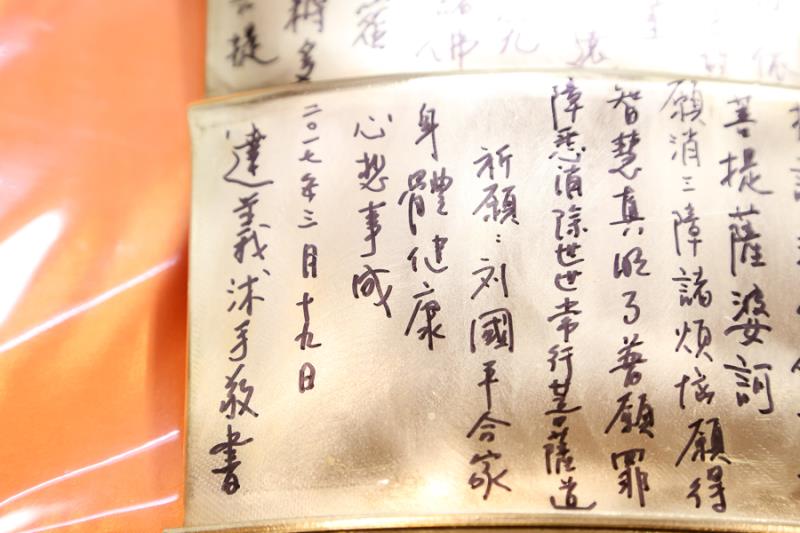 究
遠
諸佛
耨多
提
菩提薩婆訶
願消三障諸煩惱願得
智慧真明了普願罪
障悉消除世世常行菩薩道
祈願：刘國平合家
身體健康
心想事成
二〇一七年三月十九日
達義沐手敬書